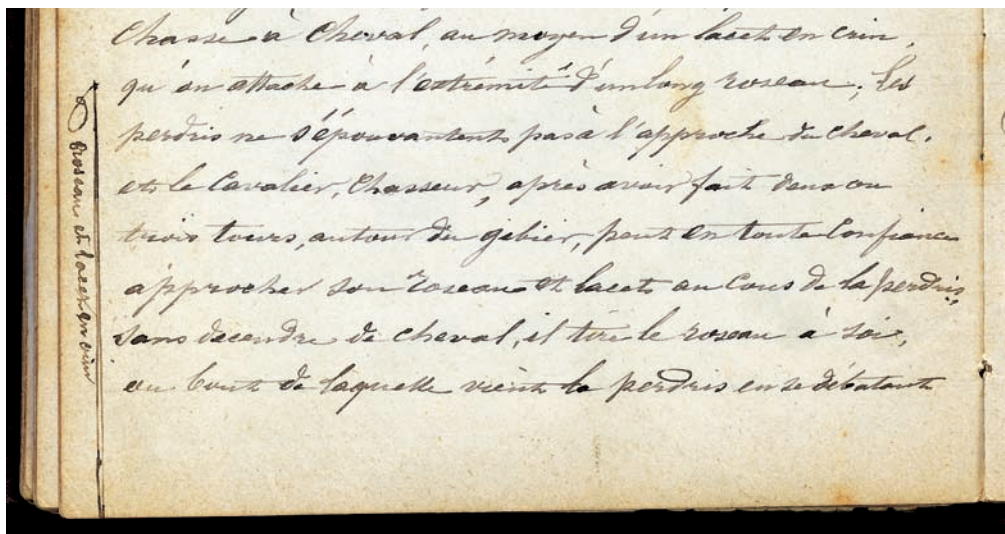 Chasse à Cheval, au moyen d'un lacet en crin,
qu'on attache à l'extrémité d'un long roseau; Les
perdris ne s'épouvantent pas à l'approche du cheval.
et le Cavalier, Chasseur, après avoir fait deux ou
trois tours, autour du gibier, peut en toute Confiance
approcher son roseau et lacet au Cous de la perdris,
sans decendre de cheval, il tire le roseau à soi,
au bout de laquelle vient la perdris en se débatant
roseau et lacet en crin